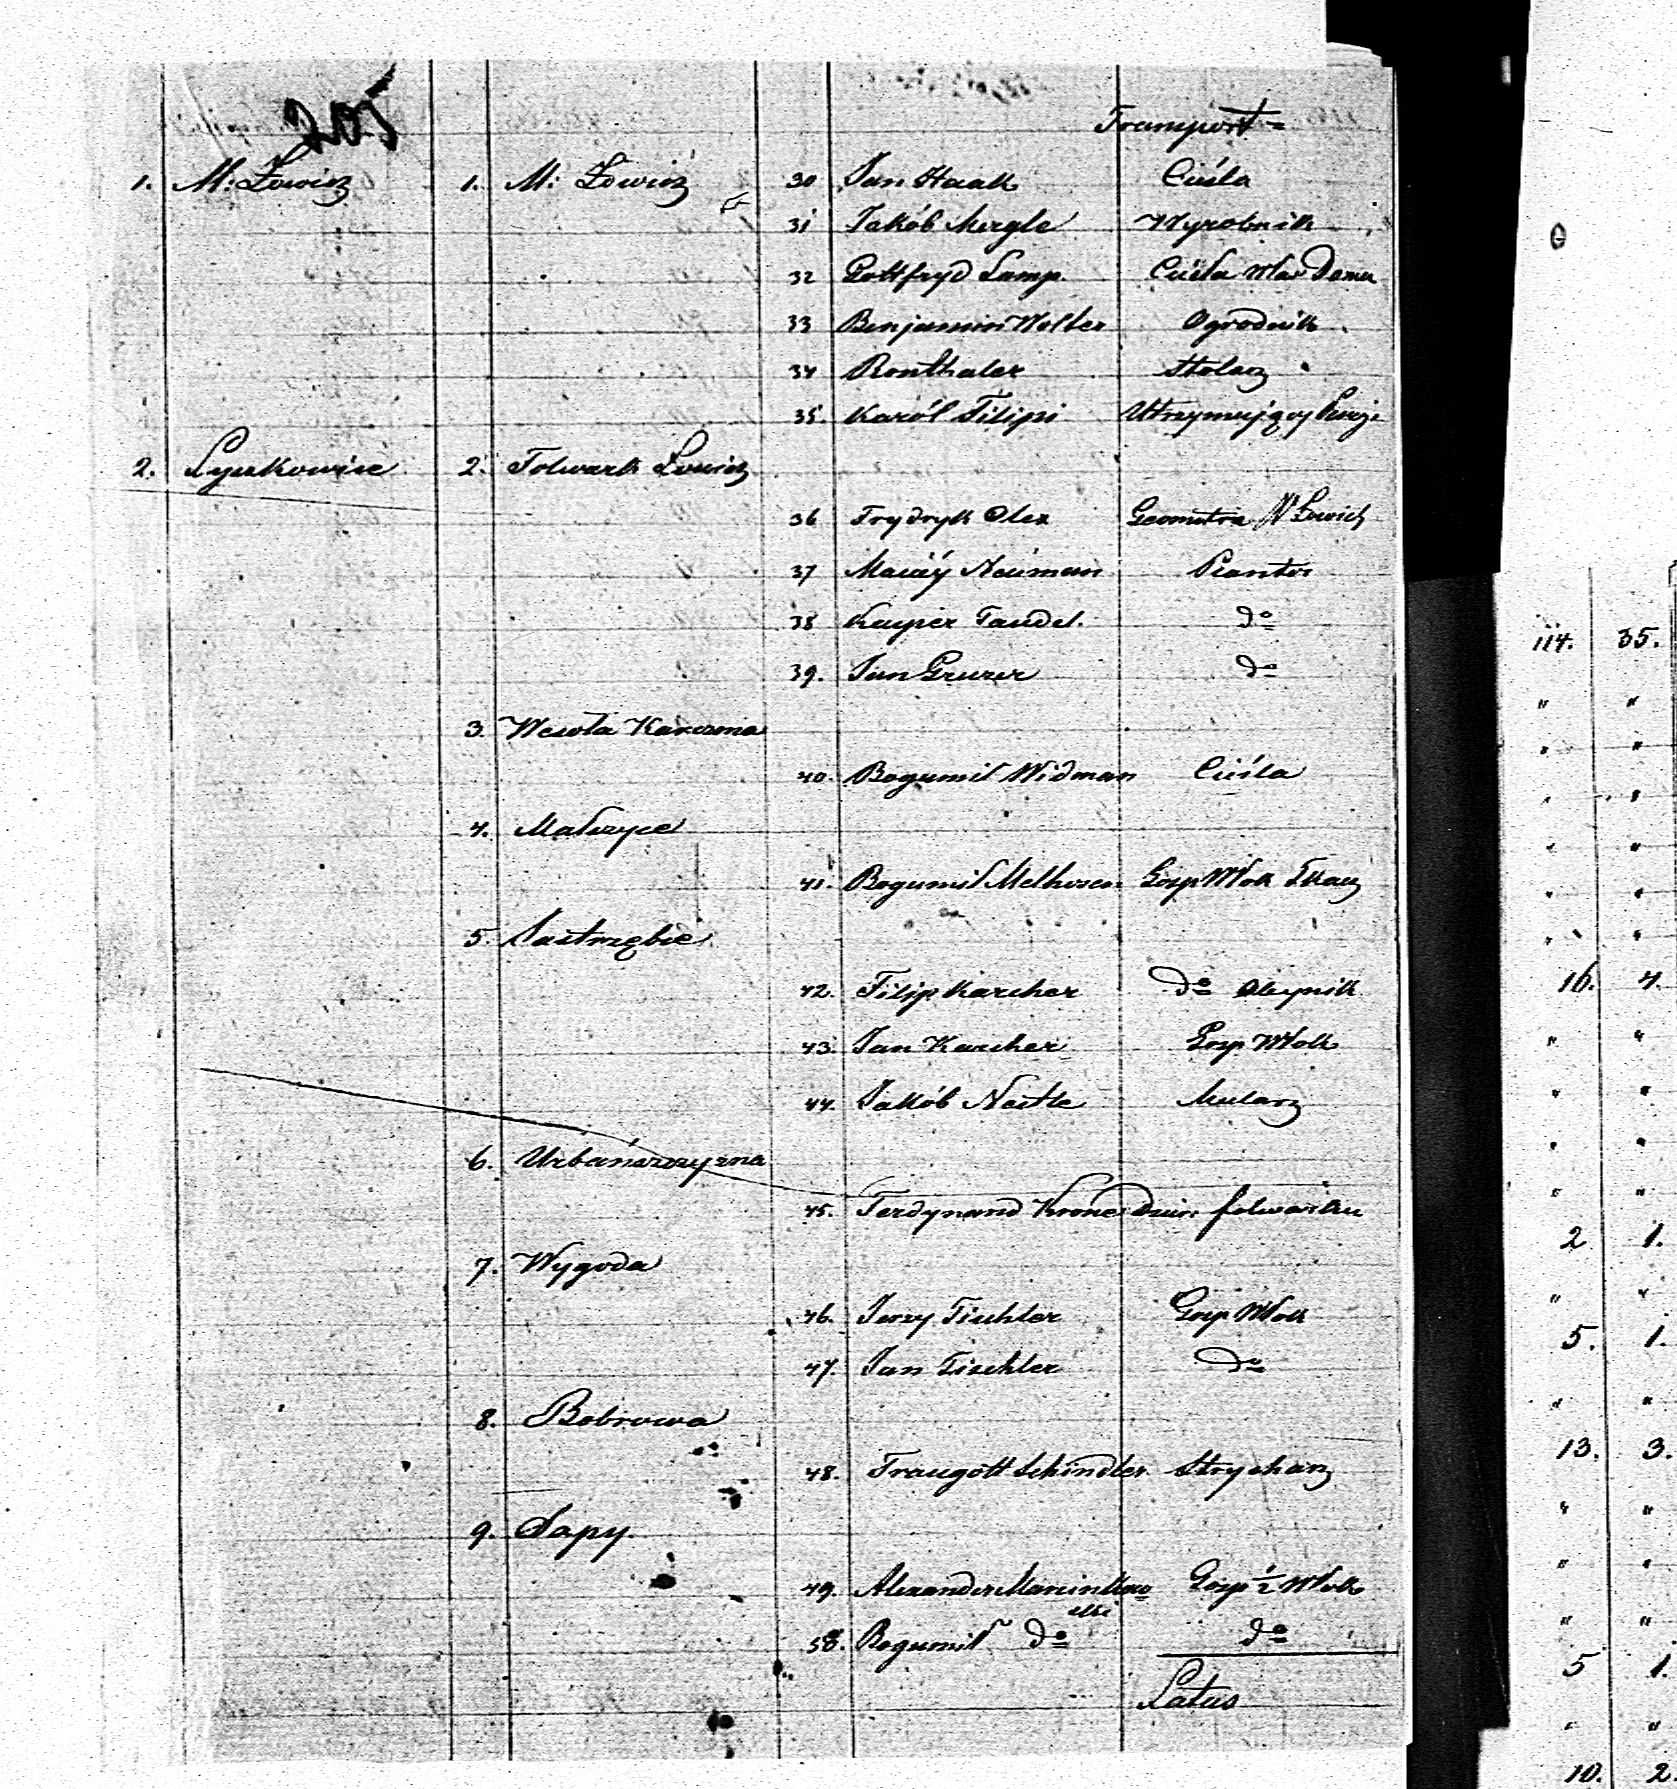 Transport
1. M: Łowicz 1. M: Łowicz 30 Jan Haak Cieśla
31 Jakób Mergle Wyrobnik
32 Gottfryd Lamp. Cieśla Wła: Domu
33 Benjamin Wolter Ogrodnik
34 Ronthaler Stolarz
35. Karól Filipi Utrzymujący
2. Łyszkowice 2. Folwark Łowicz
36 Frydryk Geometra W Łowich
37 Maciéy Neüman
38 Kasper Faudel. do
39. Jan do
3. Wesoła Karczma
40. Bogumił Widman Cieśla
4. Małszyce
41. Bogumił Gosp Włok Tkacz
5. Jastrzębie
42. Filip Karcher do Oleynik
43. Jan Karcher Gosp Włok
44. Jakób Nestle Mularz
6. Urbańszczyzna
45. Ferdynand Krone folwarku
7. Wygoda
46. Jerzy Tischler Gosp Włok
47. Jan Tischler do
8. Bobrowa
48. Traugott Schindler Strycharz
9. Sapy.
49. Alexander Marcinkow Gosp ½ Włok
ski
50. Bogumił do do
Latus
114. 35.
" "
" "
" "
" "
" "
" "
16. 4.
" "
" "
" "
" "
2 1.
" "
5. 1.
" "
13. 3.
" "
" "
" "
5 1.
" "
10. 2.